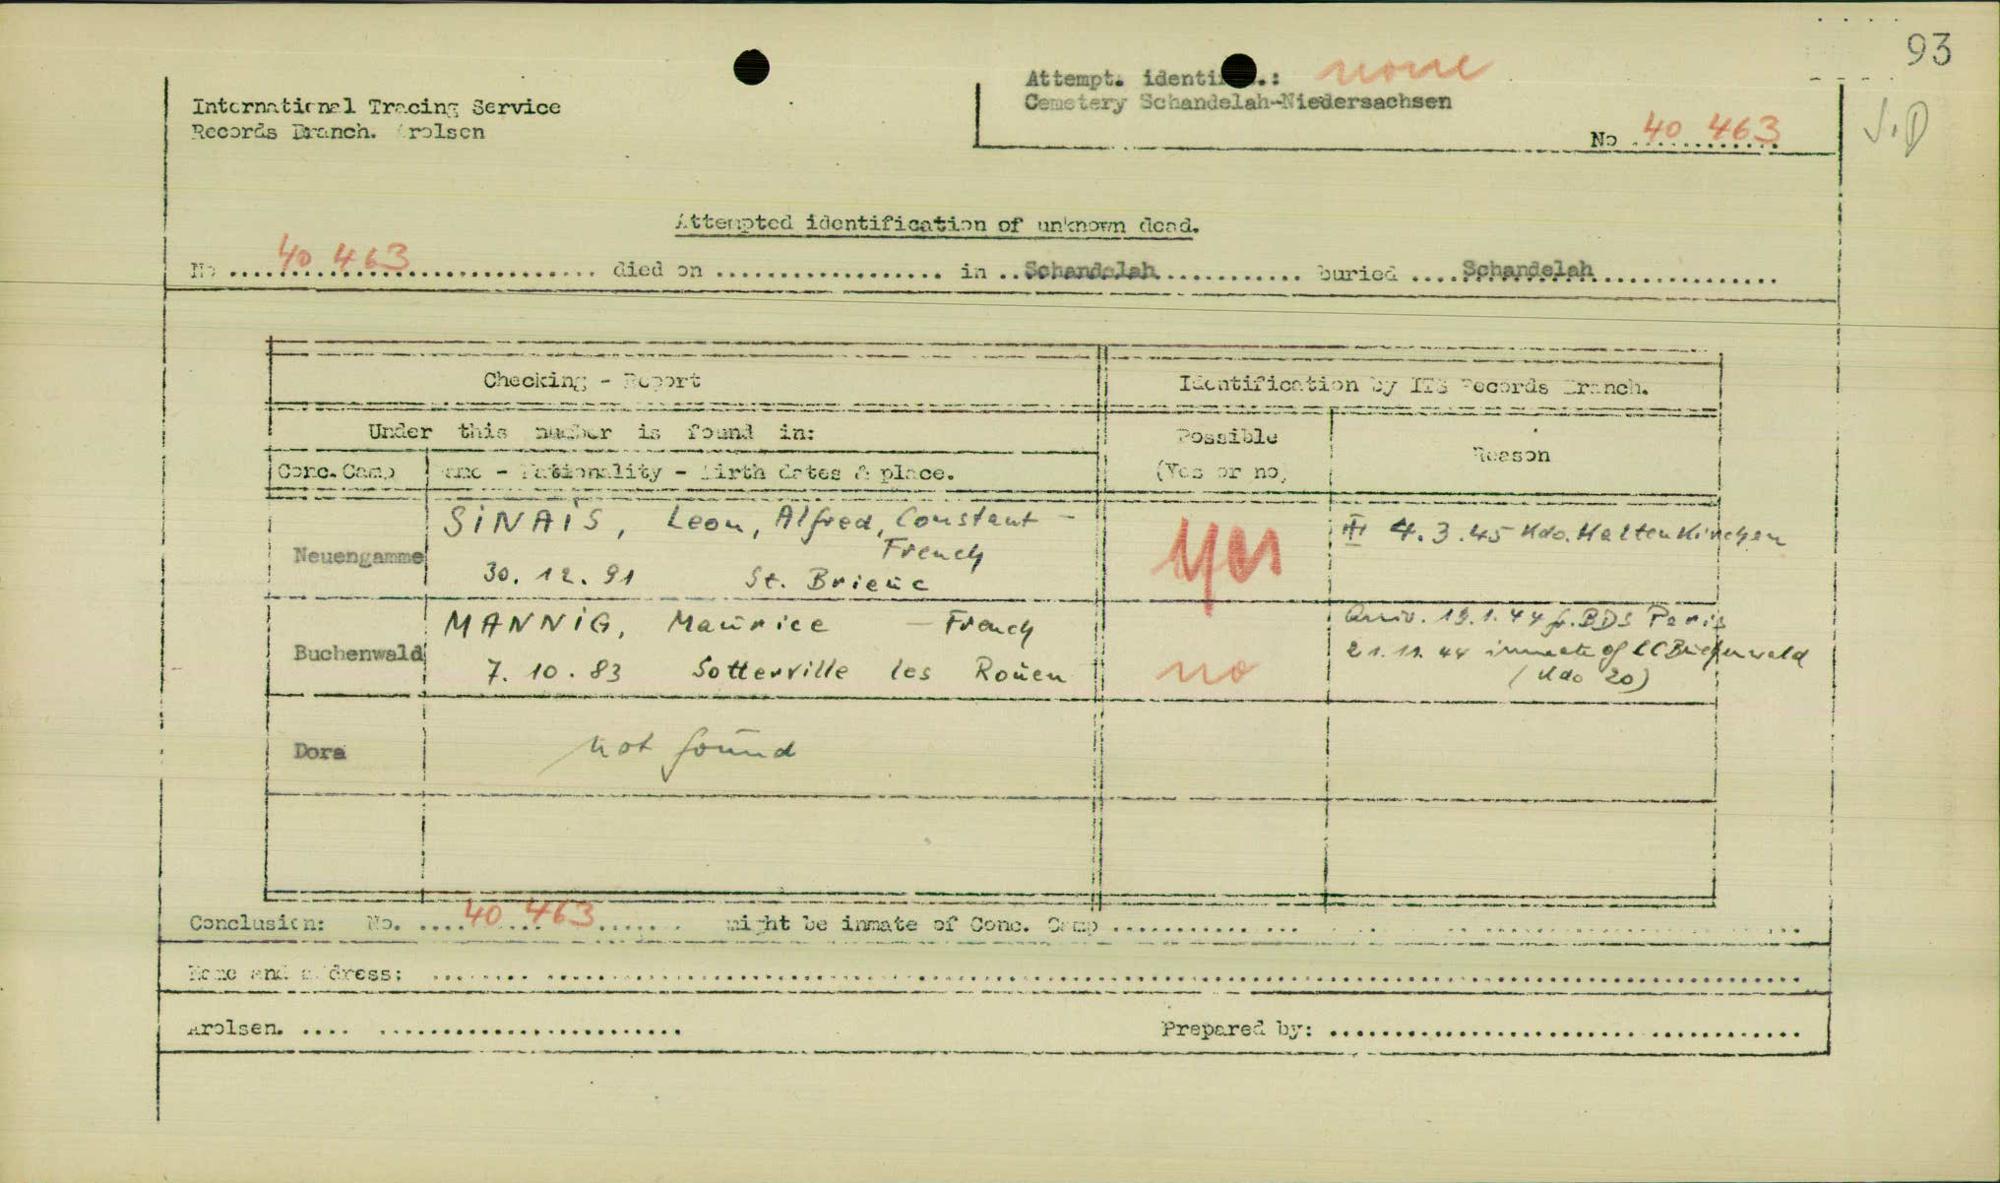 93
Attempt. identif.: none
International Tracing Service
Cemetery Schandelah-Niedersachsen
Records Branch. Arolsen
No 40 463
Attempted identification of unknown dead.
No 40 463 died on in Schandelah buried Schandelah
Checking - Report
Identification by ITS Records Branch.
Under this number is found in:
Possible
(Yes or no)
Reason
Conc. Camp
Name - Nationality - Birth dates & place.
Neuengamme
SINAIS, Leon, Alfred, Constant -
French
30. 12. 91 St. Brieuc
yes
4.3.45 Kdo. Kaltenkirchen
Buchenwald
MANNIG, Maurice - French
7. 10. 83 Sotterville les Rouen
no
arriv. 19.1.44 fr. BDS Paris
inmate of CC Buchenwald
(Kdo 20)
Dora
not found
Conclusion: No. 40 463 might be inmate of Conc. Camp
Name and address:
Arolsen.
Prepared by: